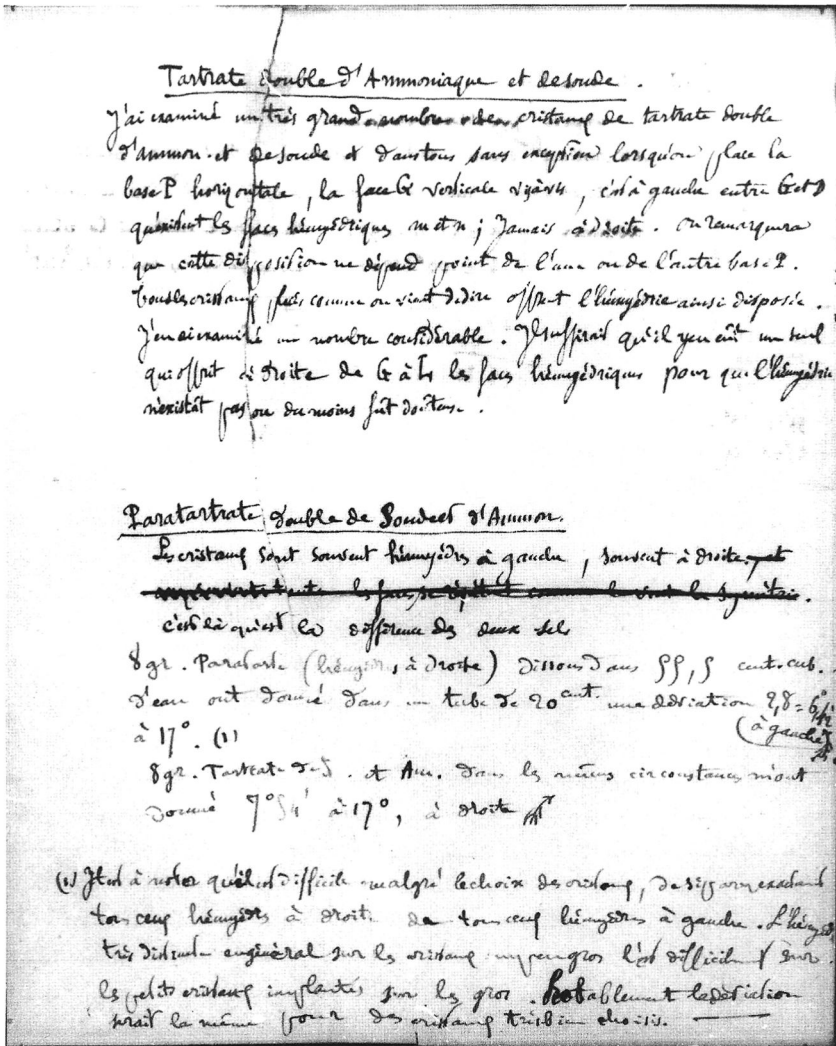 Tartrate double d'Ammoniaque et de soude.
J'ai examiné un très grand nombre de cristaux de tartrate double
d'ammon. et de soude et dans tous sans exception lorsqu'on place la
base P horizontale, la face G verticale vis à vis, c'est à gauche entre G et
qu'existent les faces hémyédriques m et n ; Jamais à droite. On remarquera
que cette disposition ne dépend point de l'une ou de l'autre base P.
Tous les cristaux, fixés comme on vient de dire offrent l'hémyédrie ainsi disposée.
J'en ai examiné un nombre considérable. Il suffirait qu'il y en eût un seul
qui offrit à droite de G à les faces hémyédriques pour que l'hémyédrie
n'existât pas ou du moins fût douteuse.
Paratartrate double de Soude et d'Ammon.
Les cristaux sont souvent hémyèdres à gauche, souvent à droite, et
les faces se répètent comme le veut la symétrie.
c'est là qu'est la différence des deux sels
8 gr. Paratartr. (hémyèdres à droite) dissous dans 55,5 cent. cub.
d'eau ont donné dans un tube de 20 cent. une déviation
(à gauche)
à 17°. (1)
8 gr. Tartrate de S. et Am. dans les mêmes circonstances m'ont
donné 7°54' à 17°, à droite
(1) Il est à noter qu'il est difficile malgré le choix des cristaux, de séparer exactement
tous ceux hémyèdres à droite de tous ceux hémyèdres à gauche. L'hémyéd
très distincte en général sur les cristaux un peu gros l'est difficilement sur
les petits cristaux implantés sur les gros. Probablement la déviation
serait la même pour des cristaux très bien choisis.